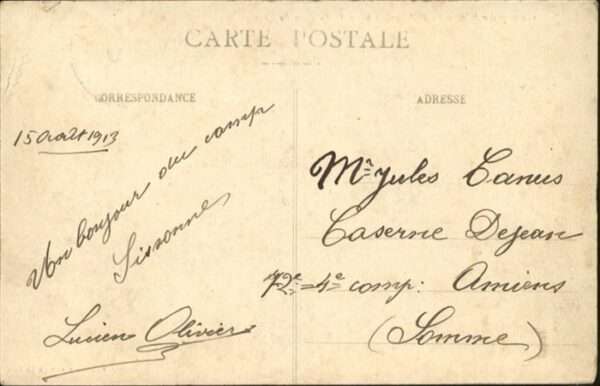 CARTE POSTALE
CORRESPONDANCE
15 Août 1913
Un bonjour du camp
Sissonne
Lucien Olivier
ADRESSE
Mr Jules Canus
Caserne Dejean
72e = 4e comp: Amiens
(Somme)